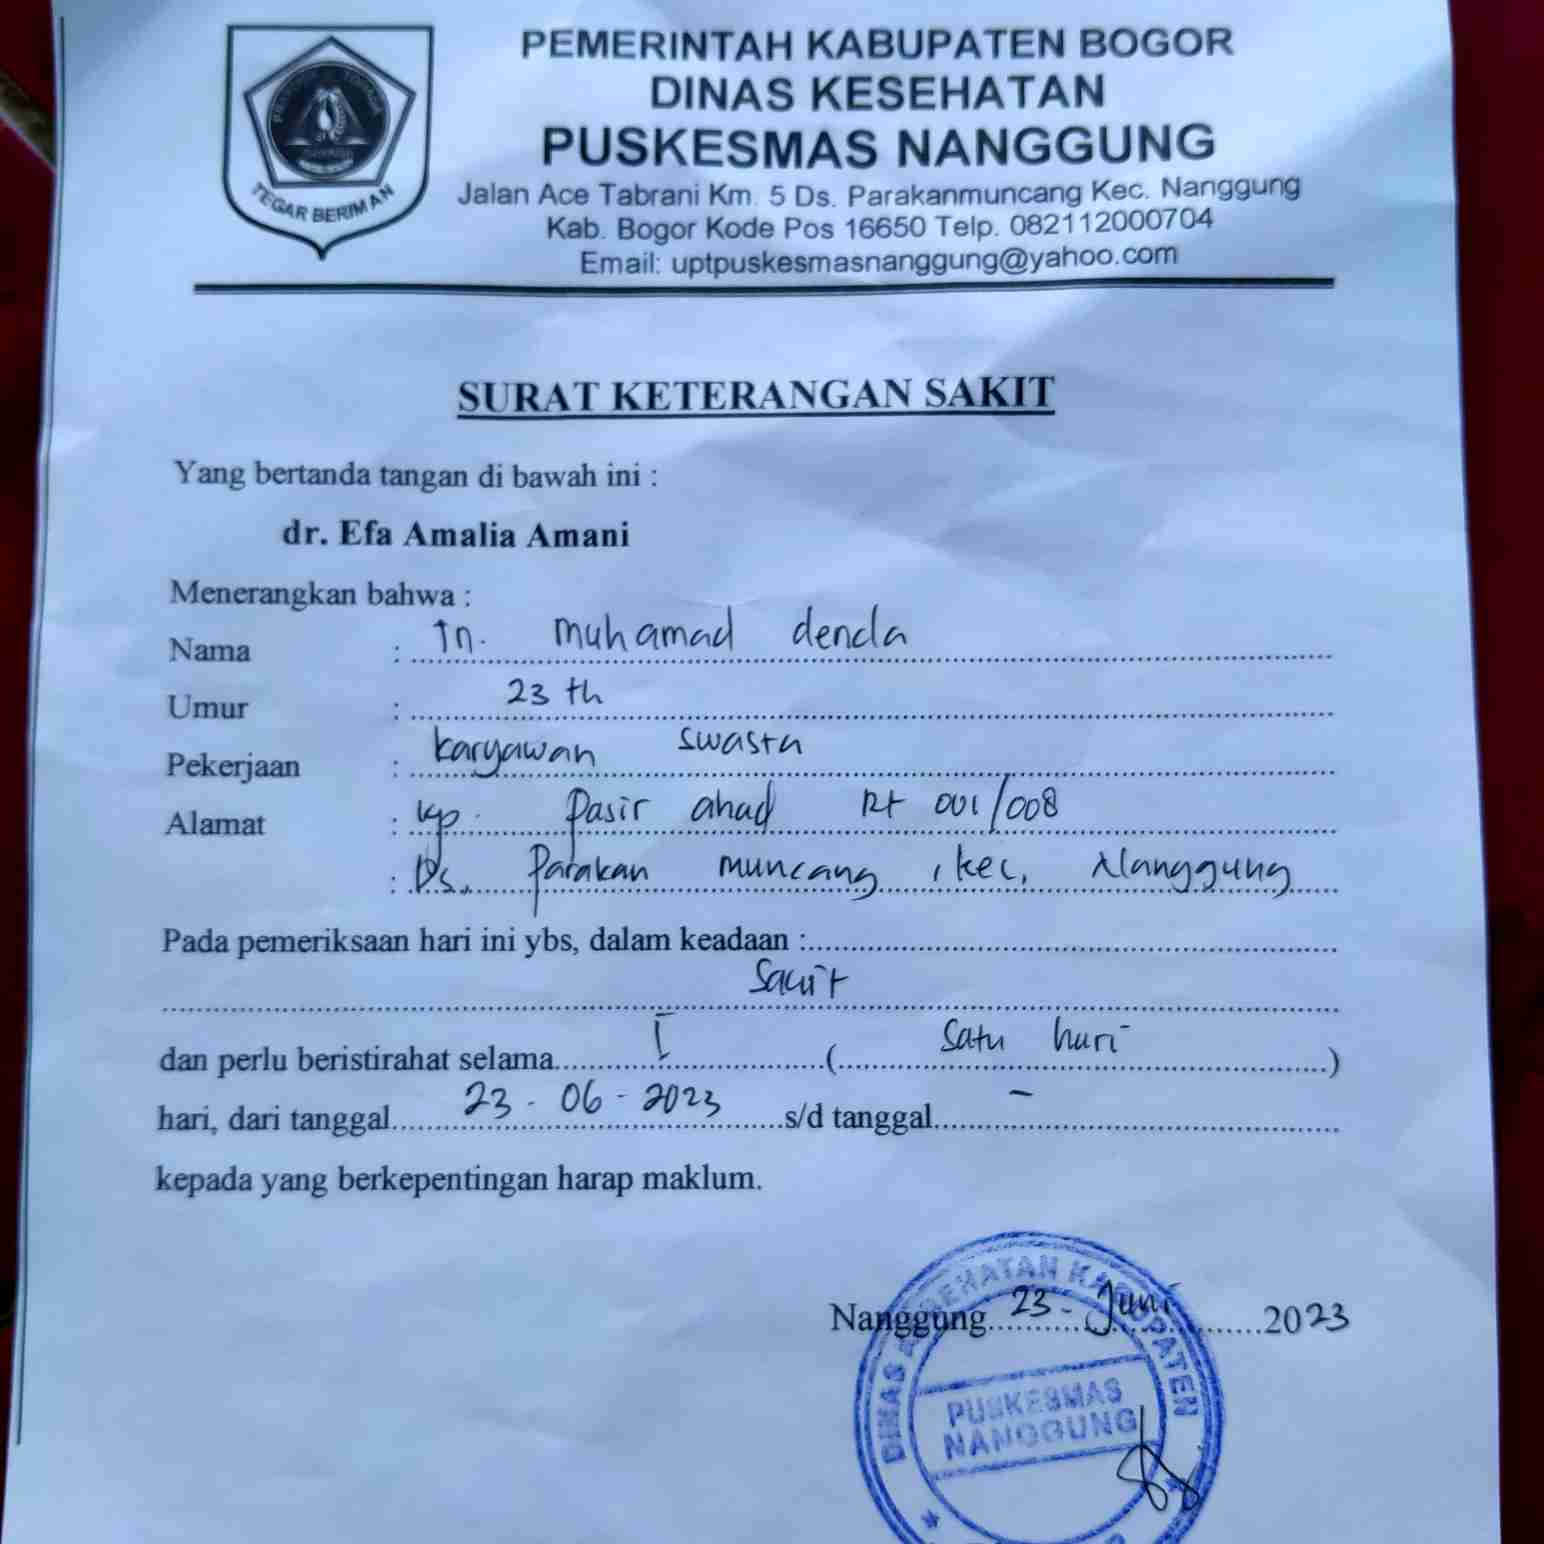 PEMERINTAH KABUPATEN BOGOR
DINAS KESEHATAN
PUSKESMAS NANGGUNG
Jalan Ace Tabrani Km. 5 Ds. Parakanmuncang Kec. Nanggung
Kab. Bogor Kode Pos 16650 Telp. 082112000704
Email: uptpuskesmasnanggung@yahoo.com
TEGAR BERIMAN
SURAT KETERANGAN SAKIT
Yang bertanda tangan di bawah ini :
dr. Efa Amalia Amani
Menerangkan bahwa :
Nama : Tn. Muhamad denda
Umur : 23 th
Pekerjaan : karyawan swasta
Alamat : kp. Pasir ahad Rt 001/008
: Ds. Parakan muncang, kec. Nanggung
Pada pemeriksaan hari ini ybs, dalam keadaan :
Sakit
dan perlu beristirahat selama I ( Satu hari )
hari, dari tanggal 23-06-2023 s/d tanggal -
kepada yang berkepentingan harap maklum.
Nanggung 23-Juni 2023
DINAS KESEHATAN KABUPATEN
PUSKESMAS
NANGGUNG